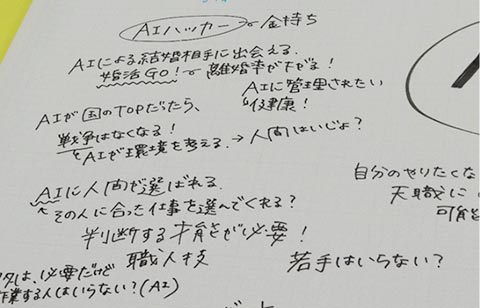 AIハッカー 金持ち
AIによる結婚相手に出会える。
婚活GO! 離婚率が下がる!
AIに管理されたい
健康!
AIが国のTOPだったら、
戦争はなくなる!
AIが環境を考える。→人間はいじょ?
自分のやりたくな
天職に
可能
AIに人間が選ばれる。
その人に合った仕事を選んでくれる?
判断する才能が必要!
職人技
若手はいらない?
は、必要だけど
作業する人はいらない?(AI)